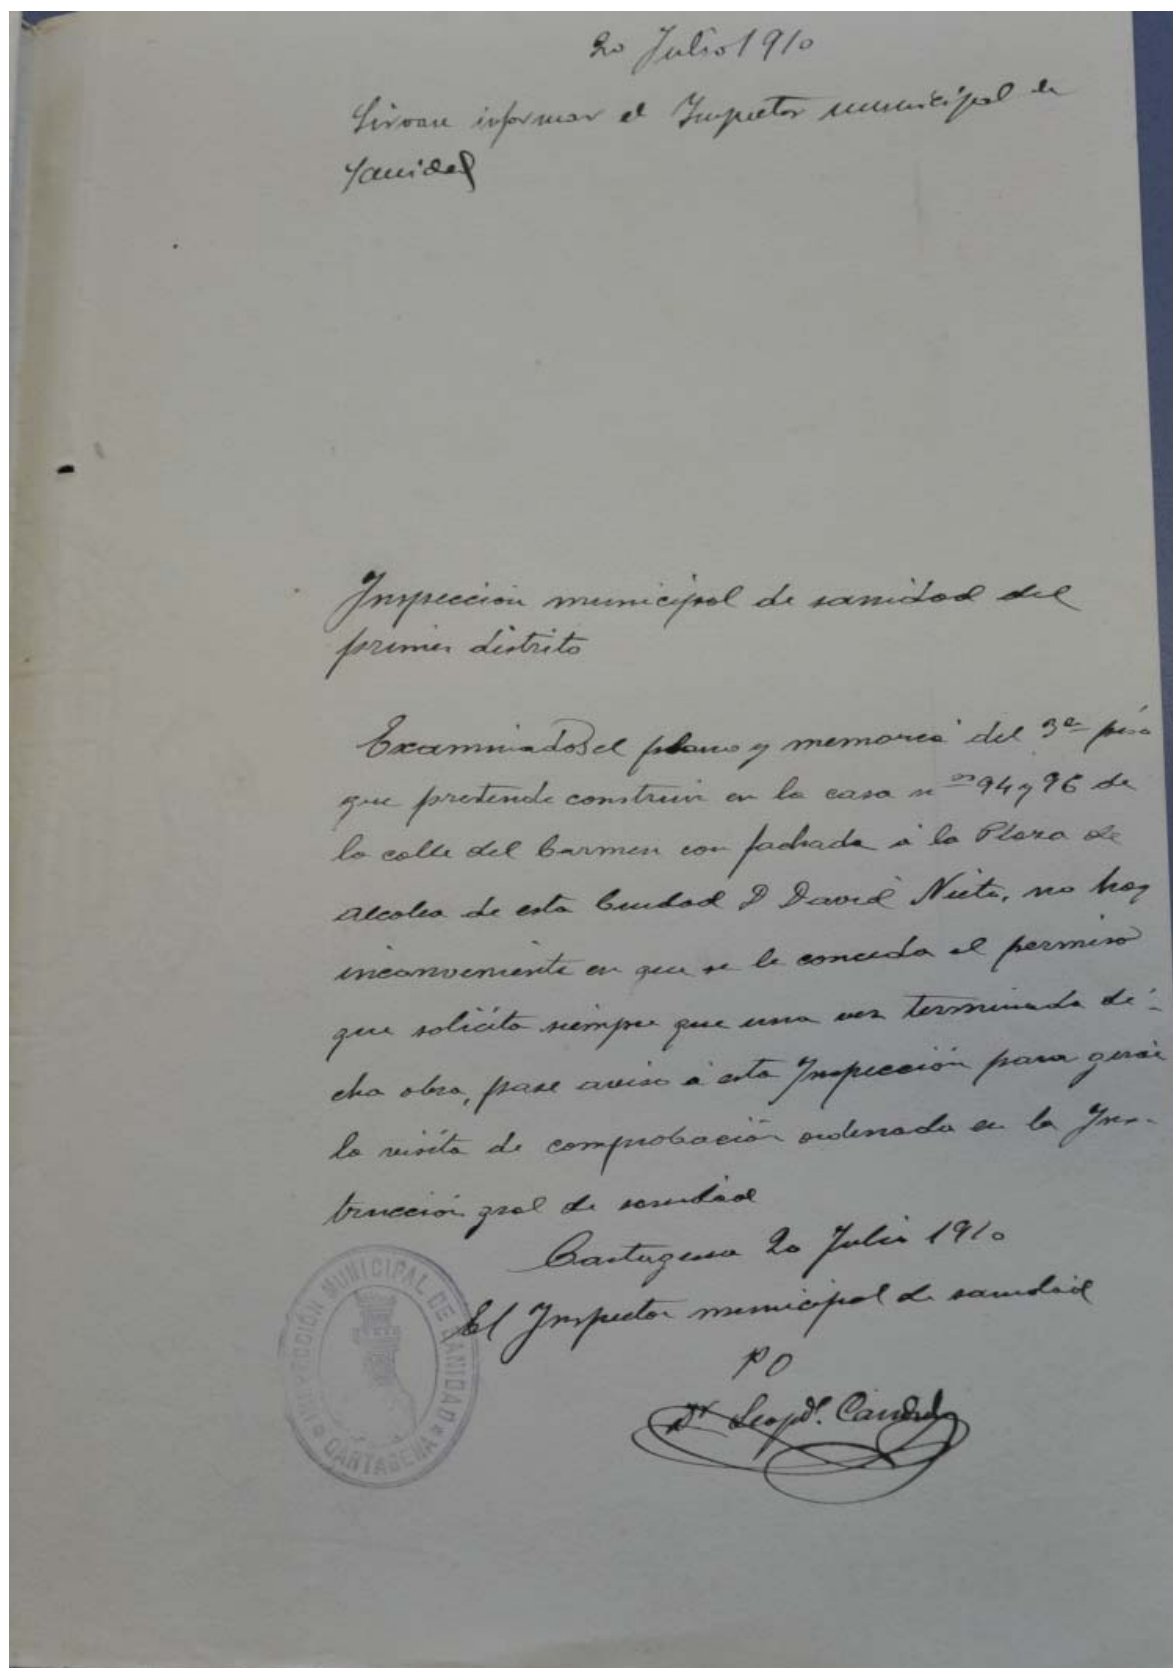 20 Julio 1910
Sirvase informar el Inspector municipal de
Sanidad
Inspeccion municipal de sanidad del
primer distrito
Examinados el plano y memoria del 3er piso
que pretende construir en la casa nos 94 y 96 de
la calle del Carmen con fachada á la Plaza de
Alcolea de esta Ciudad D David Nieto, no hay
inconveniente en que se le conceda el permiso
que solicita siempre que una vez terminada di-
cha obra, pase aviso á esta Inspección para girar
la visita de comprobación ordenada en la Ins-
trucción gral de sanidad
Cartagena 20 Julio 1910
El Inspector municipal de sanidad
PO
Dr Leopdo.
INSPECCIÓN MUNICIPAL DE SANIDAD
CARTAGENA